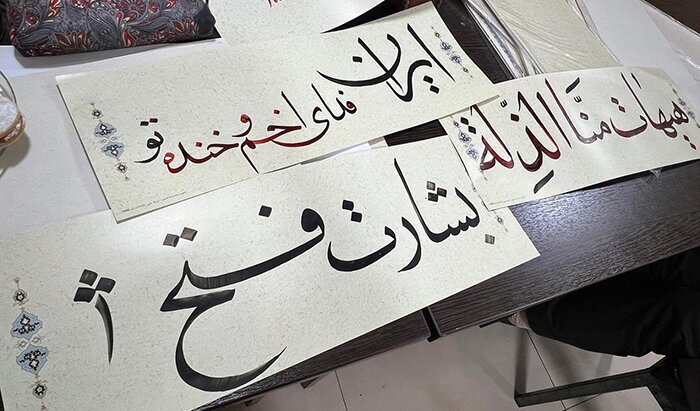 ایران
فدای اخم و خنده تو
هیهات منّا الذِلّة
بشارت فتح